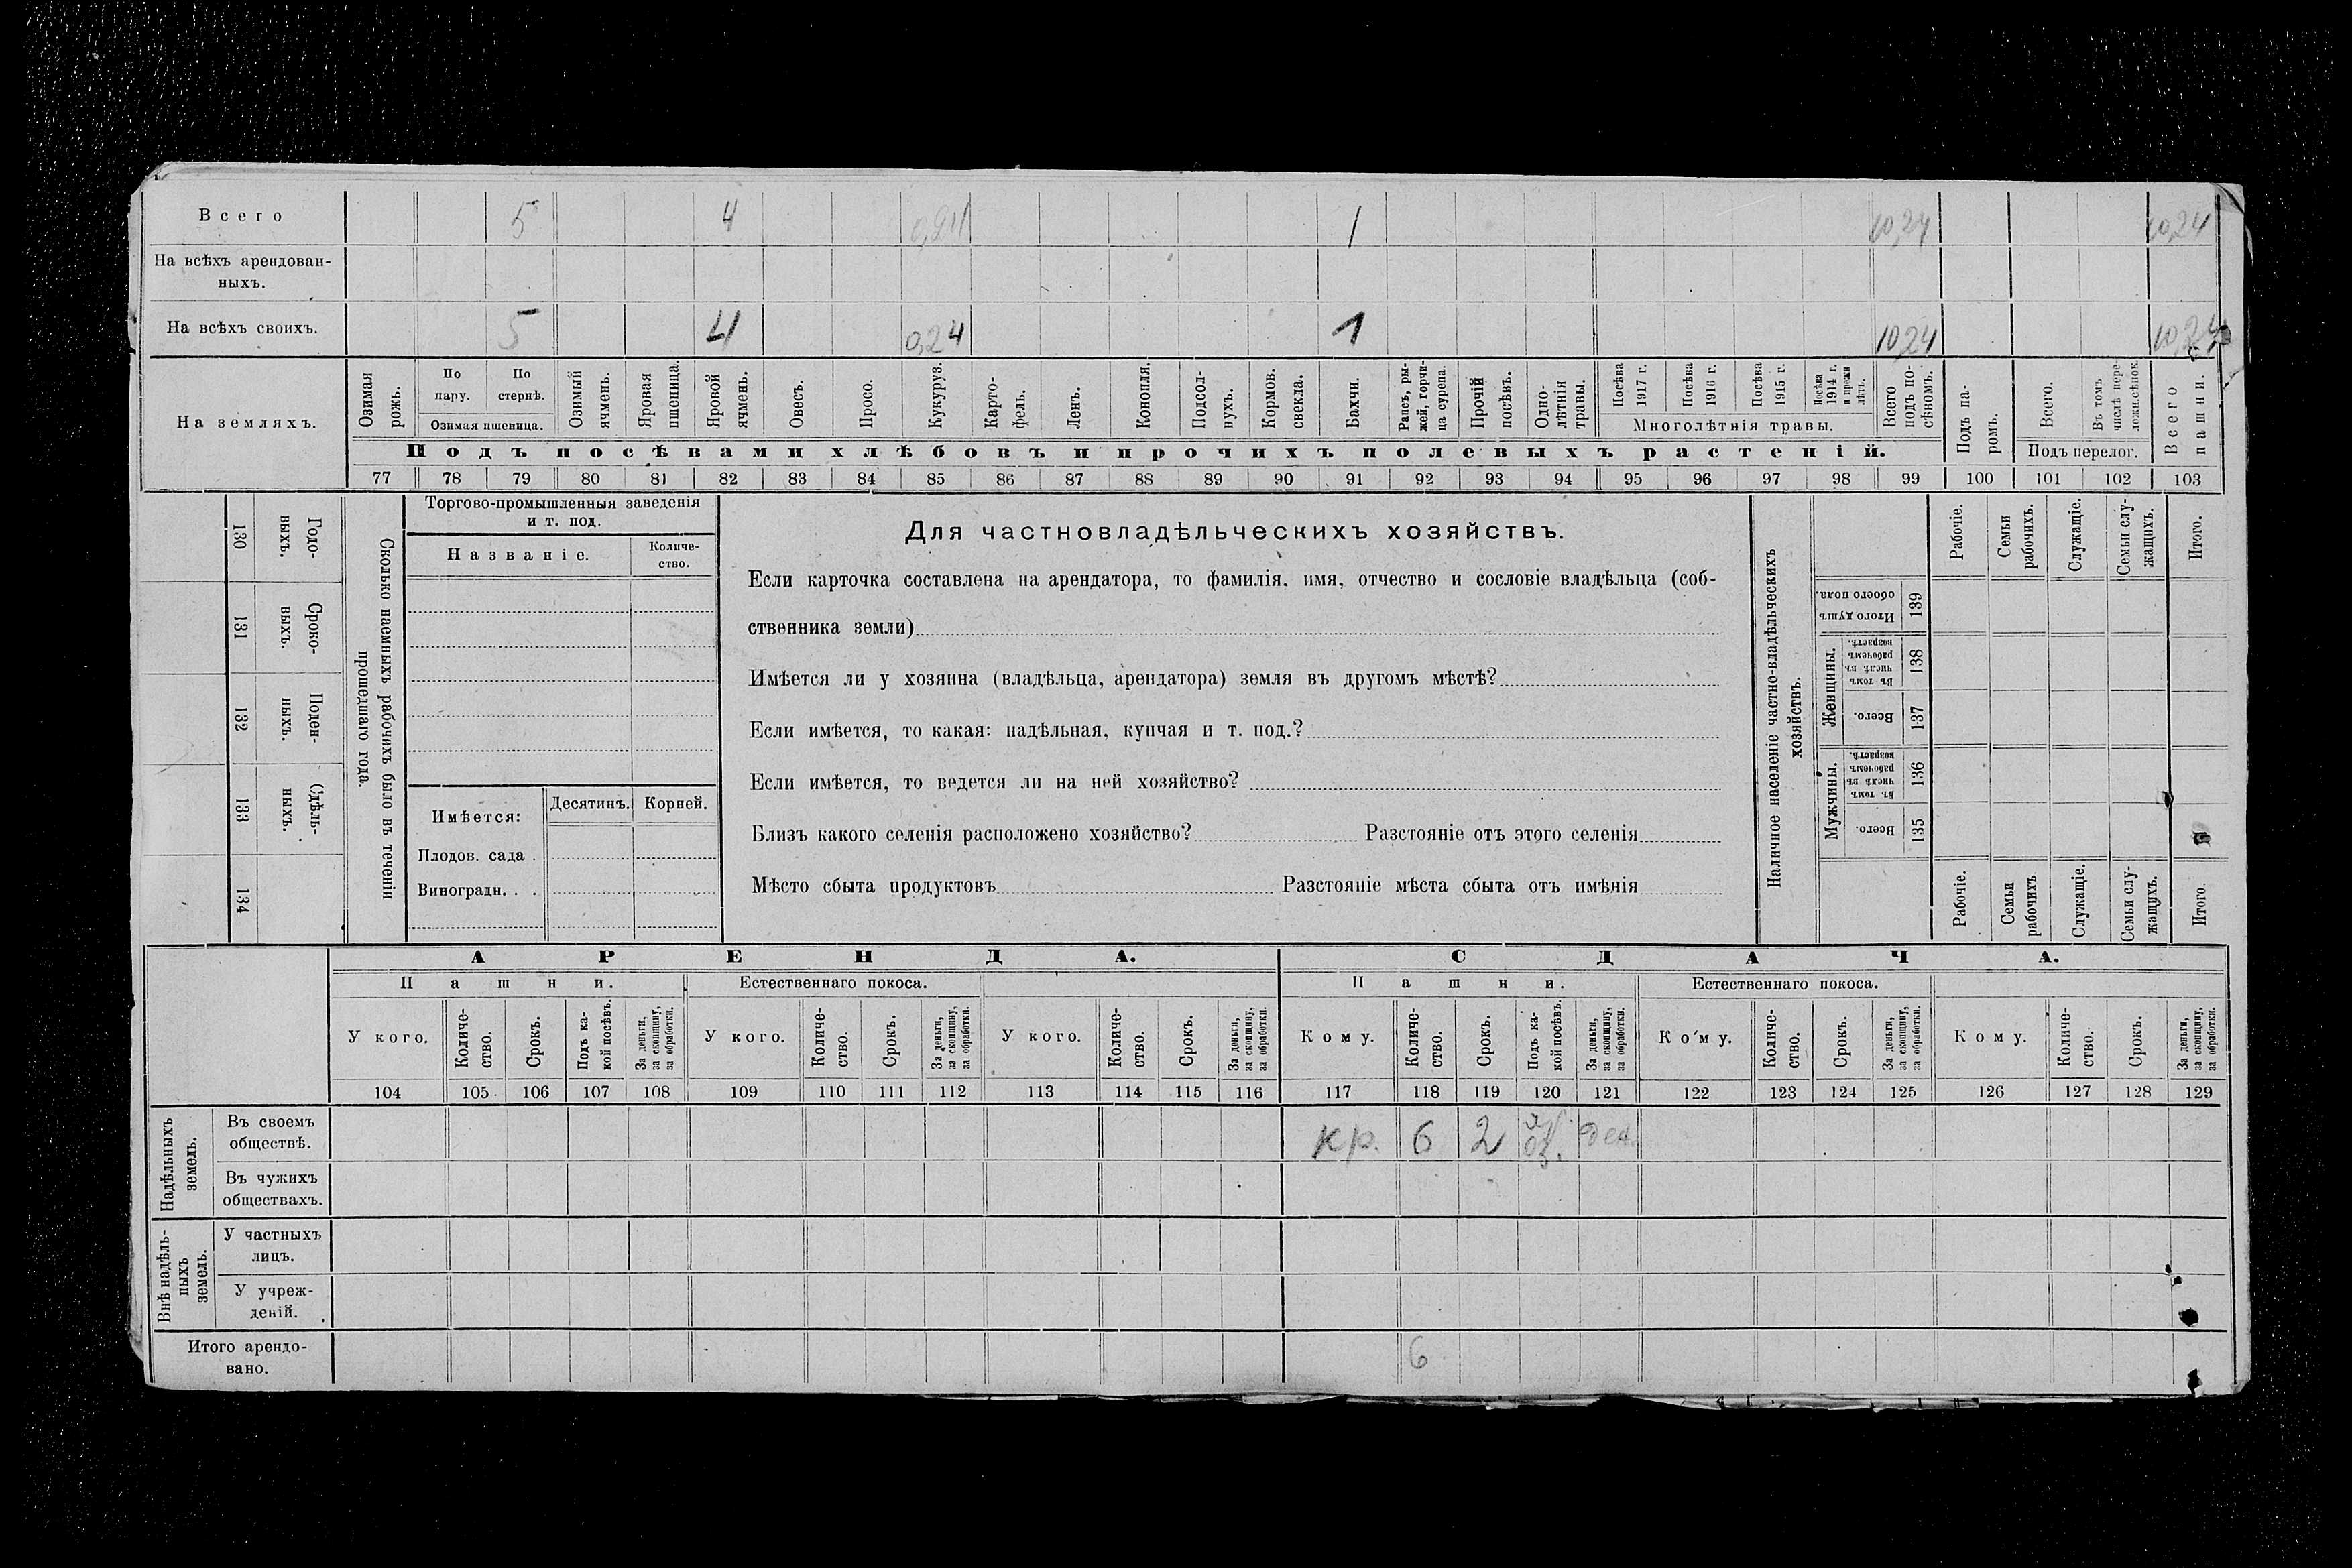 Всего 5 4 0,24 1 10,24 10,24
На всѣхъ арендован-
ныхъ.
На всѣхъ своихъ. 5 4 0,24 1 10,24 10,24
На земляхъ.
Озимая рожь.
По пару.
По стернѣ.
Озимая пшеница.
Озимый ячмень.
Яровая пшеница.
Яровой ячмень.
Овесъ.
Просо.
Кукуруз.
Карто-
фель.
Ленъ.
Конопля.
Подсол-
нухъ.
Кормов.
свекла.
Бахчи.
Рапсъ, ры-
жей, горчи-
ца сурепа.
Прочій
посѣвъ.
Одно-
лѣтнія
травы.
Посѣва
1917 г.
Посѣва
1916 г.
Посѣва
1915 г.
Посѣва
1914 г.
и прежн
лѣтъ.
Многолѣтнія травы.
Всего
подъ по-
сѣвомъ.
Подъ па-
ромъ.
Всего.
Въ томъ
числѣ пере-
ложн.сѣнок.
Подъ перелог.
Всего
пашни.
Подъ посѣвами хлѣбовъ и прочихъ полевыхъ растеній.
77 78 79 80 81 82 83 84 85 86 87 88 89 90 91 92 93 94 95 96 97 98 99 100 101 102 103
130 Годо-
выхъ.
131 Сроко-
выхъ.
132 Поден-
ныхъ.
133 Сдѣль-
ныхъ.
134
Сколько наемныхъ рабочихъ было въ теченіи
прошедшаго года.
Торгово-промышленныя заведенія
и т. под.
Названіе.
Количе-
ство.
Имѣется:
Десятинъ. Корней.
Плодов. сада .
Виноградн. . .
Для частновладѣльческихъ хозяйствъ.
Если карточка составлена на арендатора, то фамилія, имя, отчество и сословіе владѣльца (соб-
ственника земли)
Имѣется ли у хозяина (владѣльца, арендатора) земля въ другомъ мѣстѣ?
Если имѣется, то какая: надѣльная, купчая и т. под.?
Если имѣется, то ведется ли на ней хозяйство?
Близъ какого селенія расположено хозяйство? Разстояніе отъ этого селенія
Мѣсто сбыта продуктовъ Разстояніе мѣста сбыта отъ имѣнія
Наличное населеніе частно-владѣльческихъ
хозяйствъ.
Рабочіе.
Семьи
рабочихъ.
Служащіе.
Семьи слу-
жащихъ.
Итого.
Итого душ
обоего пола.
139
Женщины.
Въ томъ
числѣ въ
рабочемъ
возрастѣ.
138
Всего.
137
Мужчины.
Въ томъ
числѣ въ
рабочемъ
возрастѣ.
136
Всего.
135
Рабочіе.
Семьи
рабочихъ
Служащіе.
Семьи слу-
жащихъ.
Итого.
АРЕНДА. СДАЧА.
Пашни. Естественнаго покоса. Пашни. Естественнаго покоса.
У кого.
Количе-
ство.
Срокъ.
Подъ ка-
кой посѣвъ.
За деньги,
за скопщину,
за обработки.
У кого.
Количе-
ство.
Срокъ.
За деньги,
за скопщину,
за обработки.
У кого.
Количе-
ство.
Срокъ.
За деньги,
за скопщину,
за обработки.
Кому.
Количе-
ство.
Срокъ.
Подъ ка-
кой посѣвъ.
За деньги,
за скопщину,
за обработки.
Кому.
Количе-
ство.
Срокъ.
За деньги,
за скопщину,
за обработки.
Кому.
Количе-
ство.
Срокъ.
За деньги,
за скопщину,
за обработки.
104 105 106 107 108 109 110 111 112 113 114 115 116 117 118 119 120 121 122 123 124 125 126 127 128 129
Надѣльныхъ
земель.
Въ своемъ
обществѣ.
кр. 6 2 оз.
Въ чужихъ
обществахъ.
Внѣ надѣль-
ныхъ
земель.
У частныхъ
лицъ.
У учреж-
деній.
Итого арендо-
вано.
6